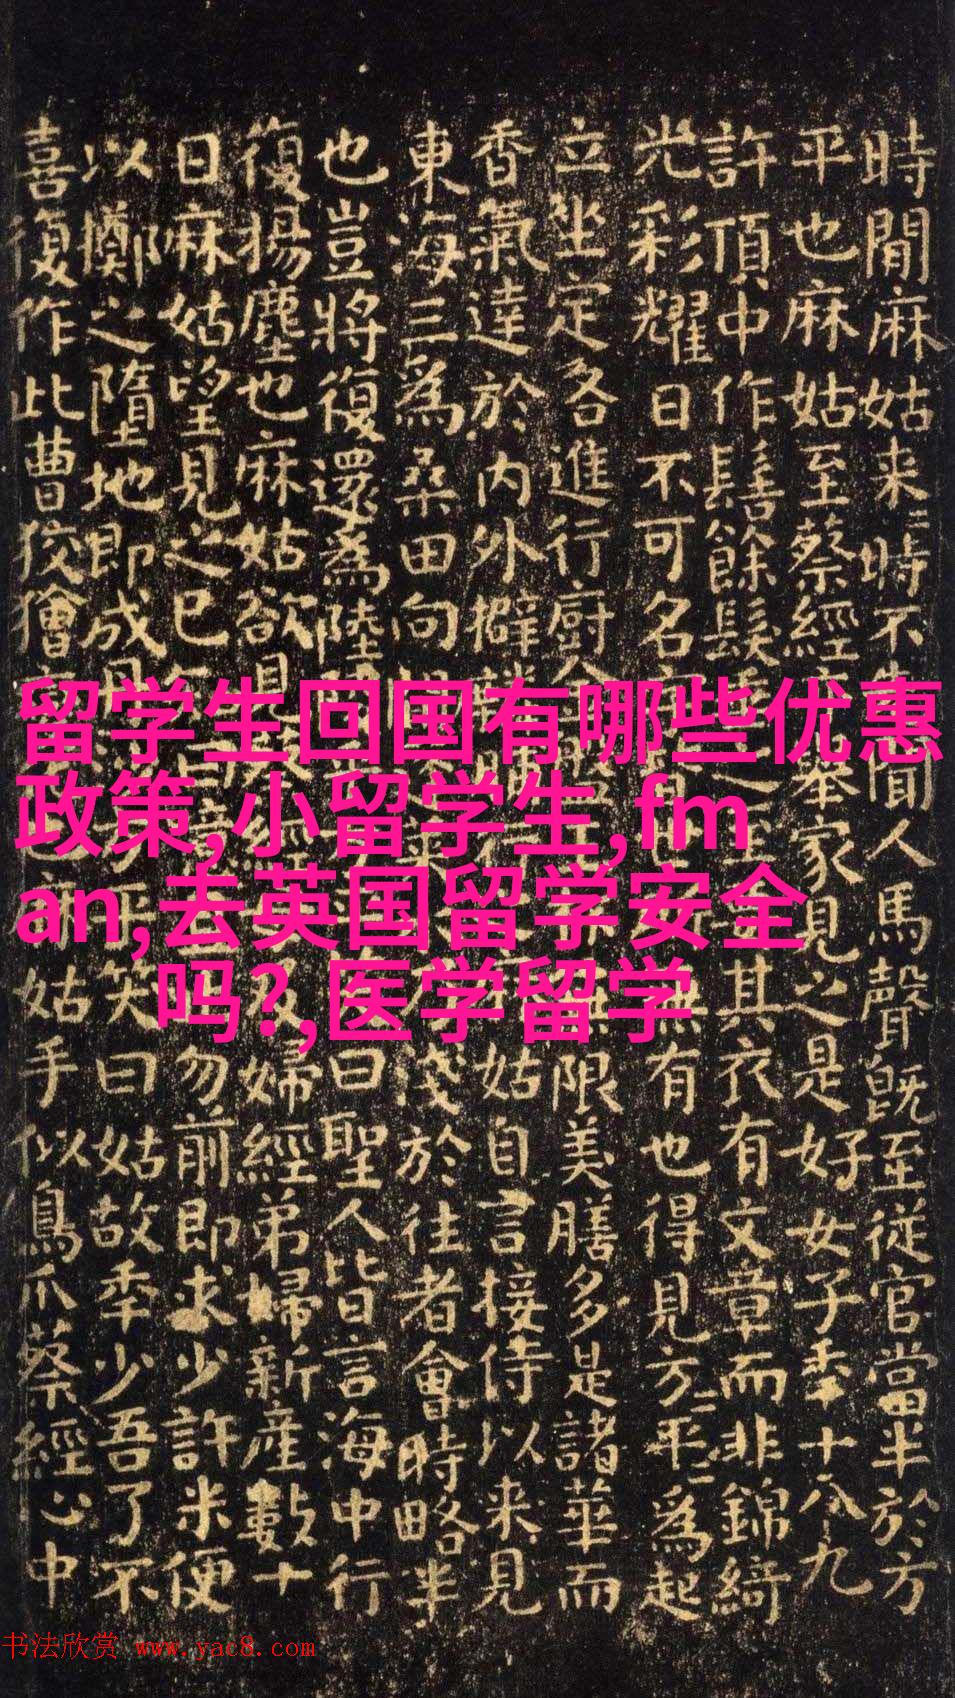 時間麻姑来〻時不聞人馬聲既至從官當半於方
平也麻姑至蔡經舉家見之是好女子年十八九
許頂中作髻餘髮之至其衣有文章而非錦綺
光彩耀日不可名無有也得見方平〻為起
立坐定各進行廚金限美膳多是諸華而
香氣達於内外擗姑自言接侍以来見
東海三為桑田向淺於往者會時略半
也豈將復還為陸曰聖人皆言海中行
復揚塵也麻姑欲見及婦經弟婦新產數十
日麻姑望見之已勿前即求少許米便
以擲之墮地即成笑曰姑故年少吾了不
喜復作此曹狡獪姑手似鳥爪蔡經心中
留学生回国有哪些优惠
政策,小留学生,fm
an,去英国留学安全
吗?,医学留学
书法欣赏 www.yac8.com